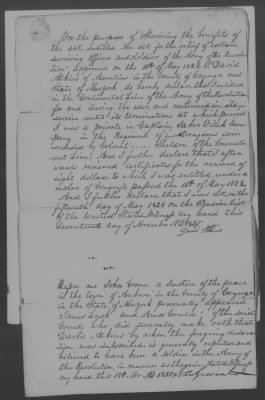 For the purpose of obtaining the benefits of
the act entitled An act for the relief of certain
surviving Officers and Soldiers of the Army of the Revolu-
tion Approved on the 15th of May 1828. I David
Atkins of Aurelius in the County of Cayuga and
State of Newyork do hereby declare that I enlisted
in the Continental line of the Army of the Revolution
for and during the war and continued in its
service until its termination at which period
I was a private in Captain
in the Regiment of Dragoons com-
manded by Colonel Sheldon of the Continen-
tal line. And I further declare that I after-
wards received certificates for the reward of
eight dollars to which I was entitled under a
resolve of Congress passed the 15th of May 1778
And I further declare, that I was not on the
fifteenth day of May 1828 on the Pension list
of the United States Witness my hand this
Seventeenth day of November
David Atkins
Before me John Grover a Justice of the peace
in the town of Auburn in the County of Cayuga
in the State of Newyork personally appeared
James and Amos of the said
County who did severally make oath that
David Atkins by whom the foregoing declara-
tion was subscribed is generally reputed and
believed to have been a soldier in the Army of
the Revolution in manner as therein stated Witness
my hand this